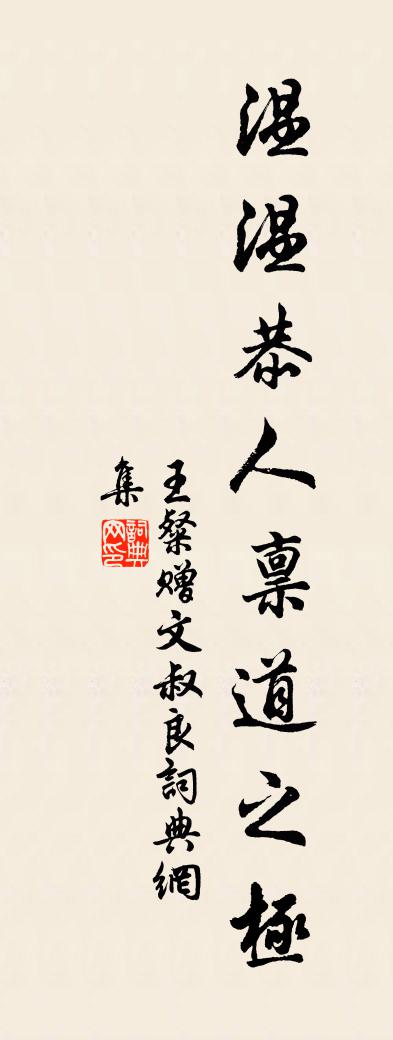 溫溫恭人稟道之極
王粲贈文叔良詞典網
集
詞典
网印